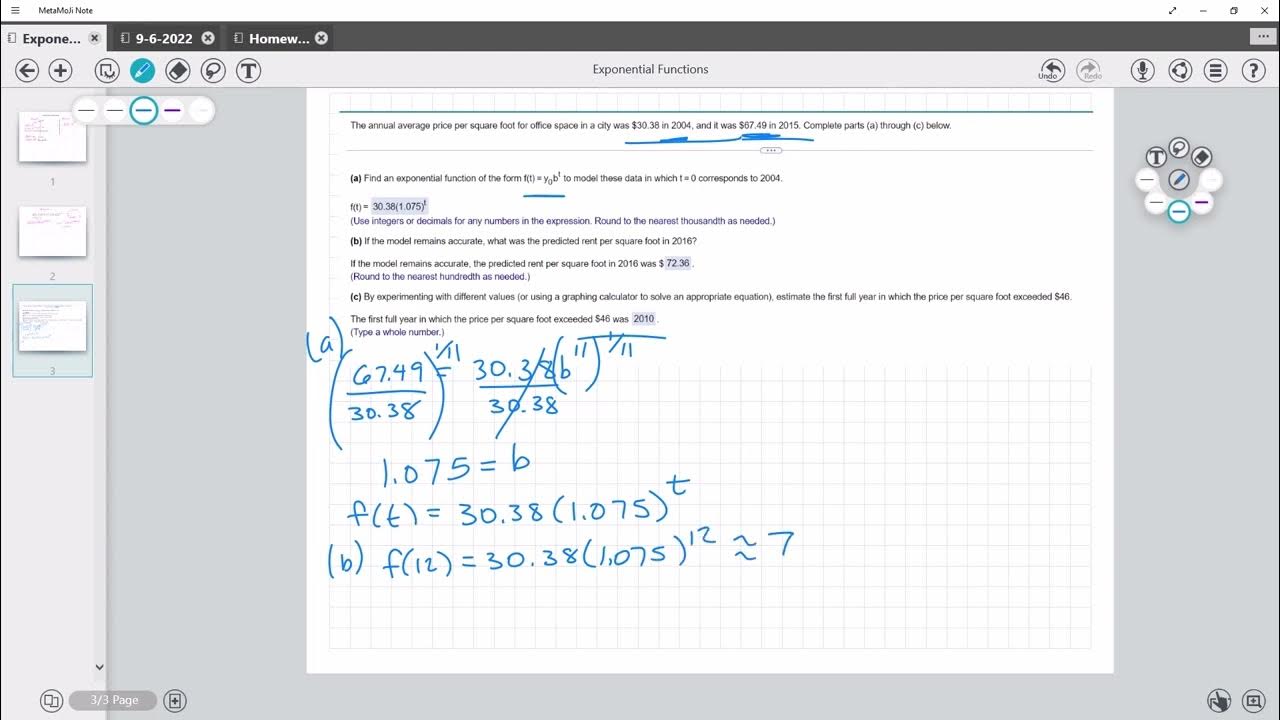 MetaMoJi Note
Expone...
9-6-2022
Homew...
Exponential Functions
Undo
Redo
1
2
3
The annual average price per square foot for office space in a city was $30.38 in 2004, and it was $67.49 in 2015. Complete parts (a) through (c) below.
(a) Find an exponential function of the form f(t) = y₀bᵗ to model these data in which t = 0 corresponds to 2004.
f(t) = 30.38(1.075)ᵗ
(Use integers or decimals for any numbers in the expression. Round to the nearest thousandth as needed.)
(b) If the model remains accurate, what was the predicted rent per square foot in 2016?
If the model remains accurate, the predicted rent per square foot in 2016 was $ 72.36 .
(Round to the nearest hundredth as needed.)
(c) By experimenting with different values (or using a graphing calculator to solve an appropriate equation), estimate the first full year in which the price per square foot exceeded $46.
The first full year in which the price per square foot exceeded $46 was 2010 .
(Type a whole number.)
(a) (67.49/30.38)^1/11 = 30.38(b^11)^1/11/30.38
1.075 = b
f(t) = 30.38(1.075)ᵗ
(b) f(12) = 30.38(1.075)¹² ≈ 7
3/3 Page